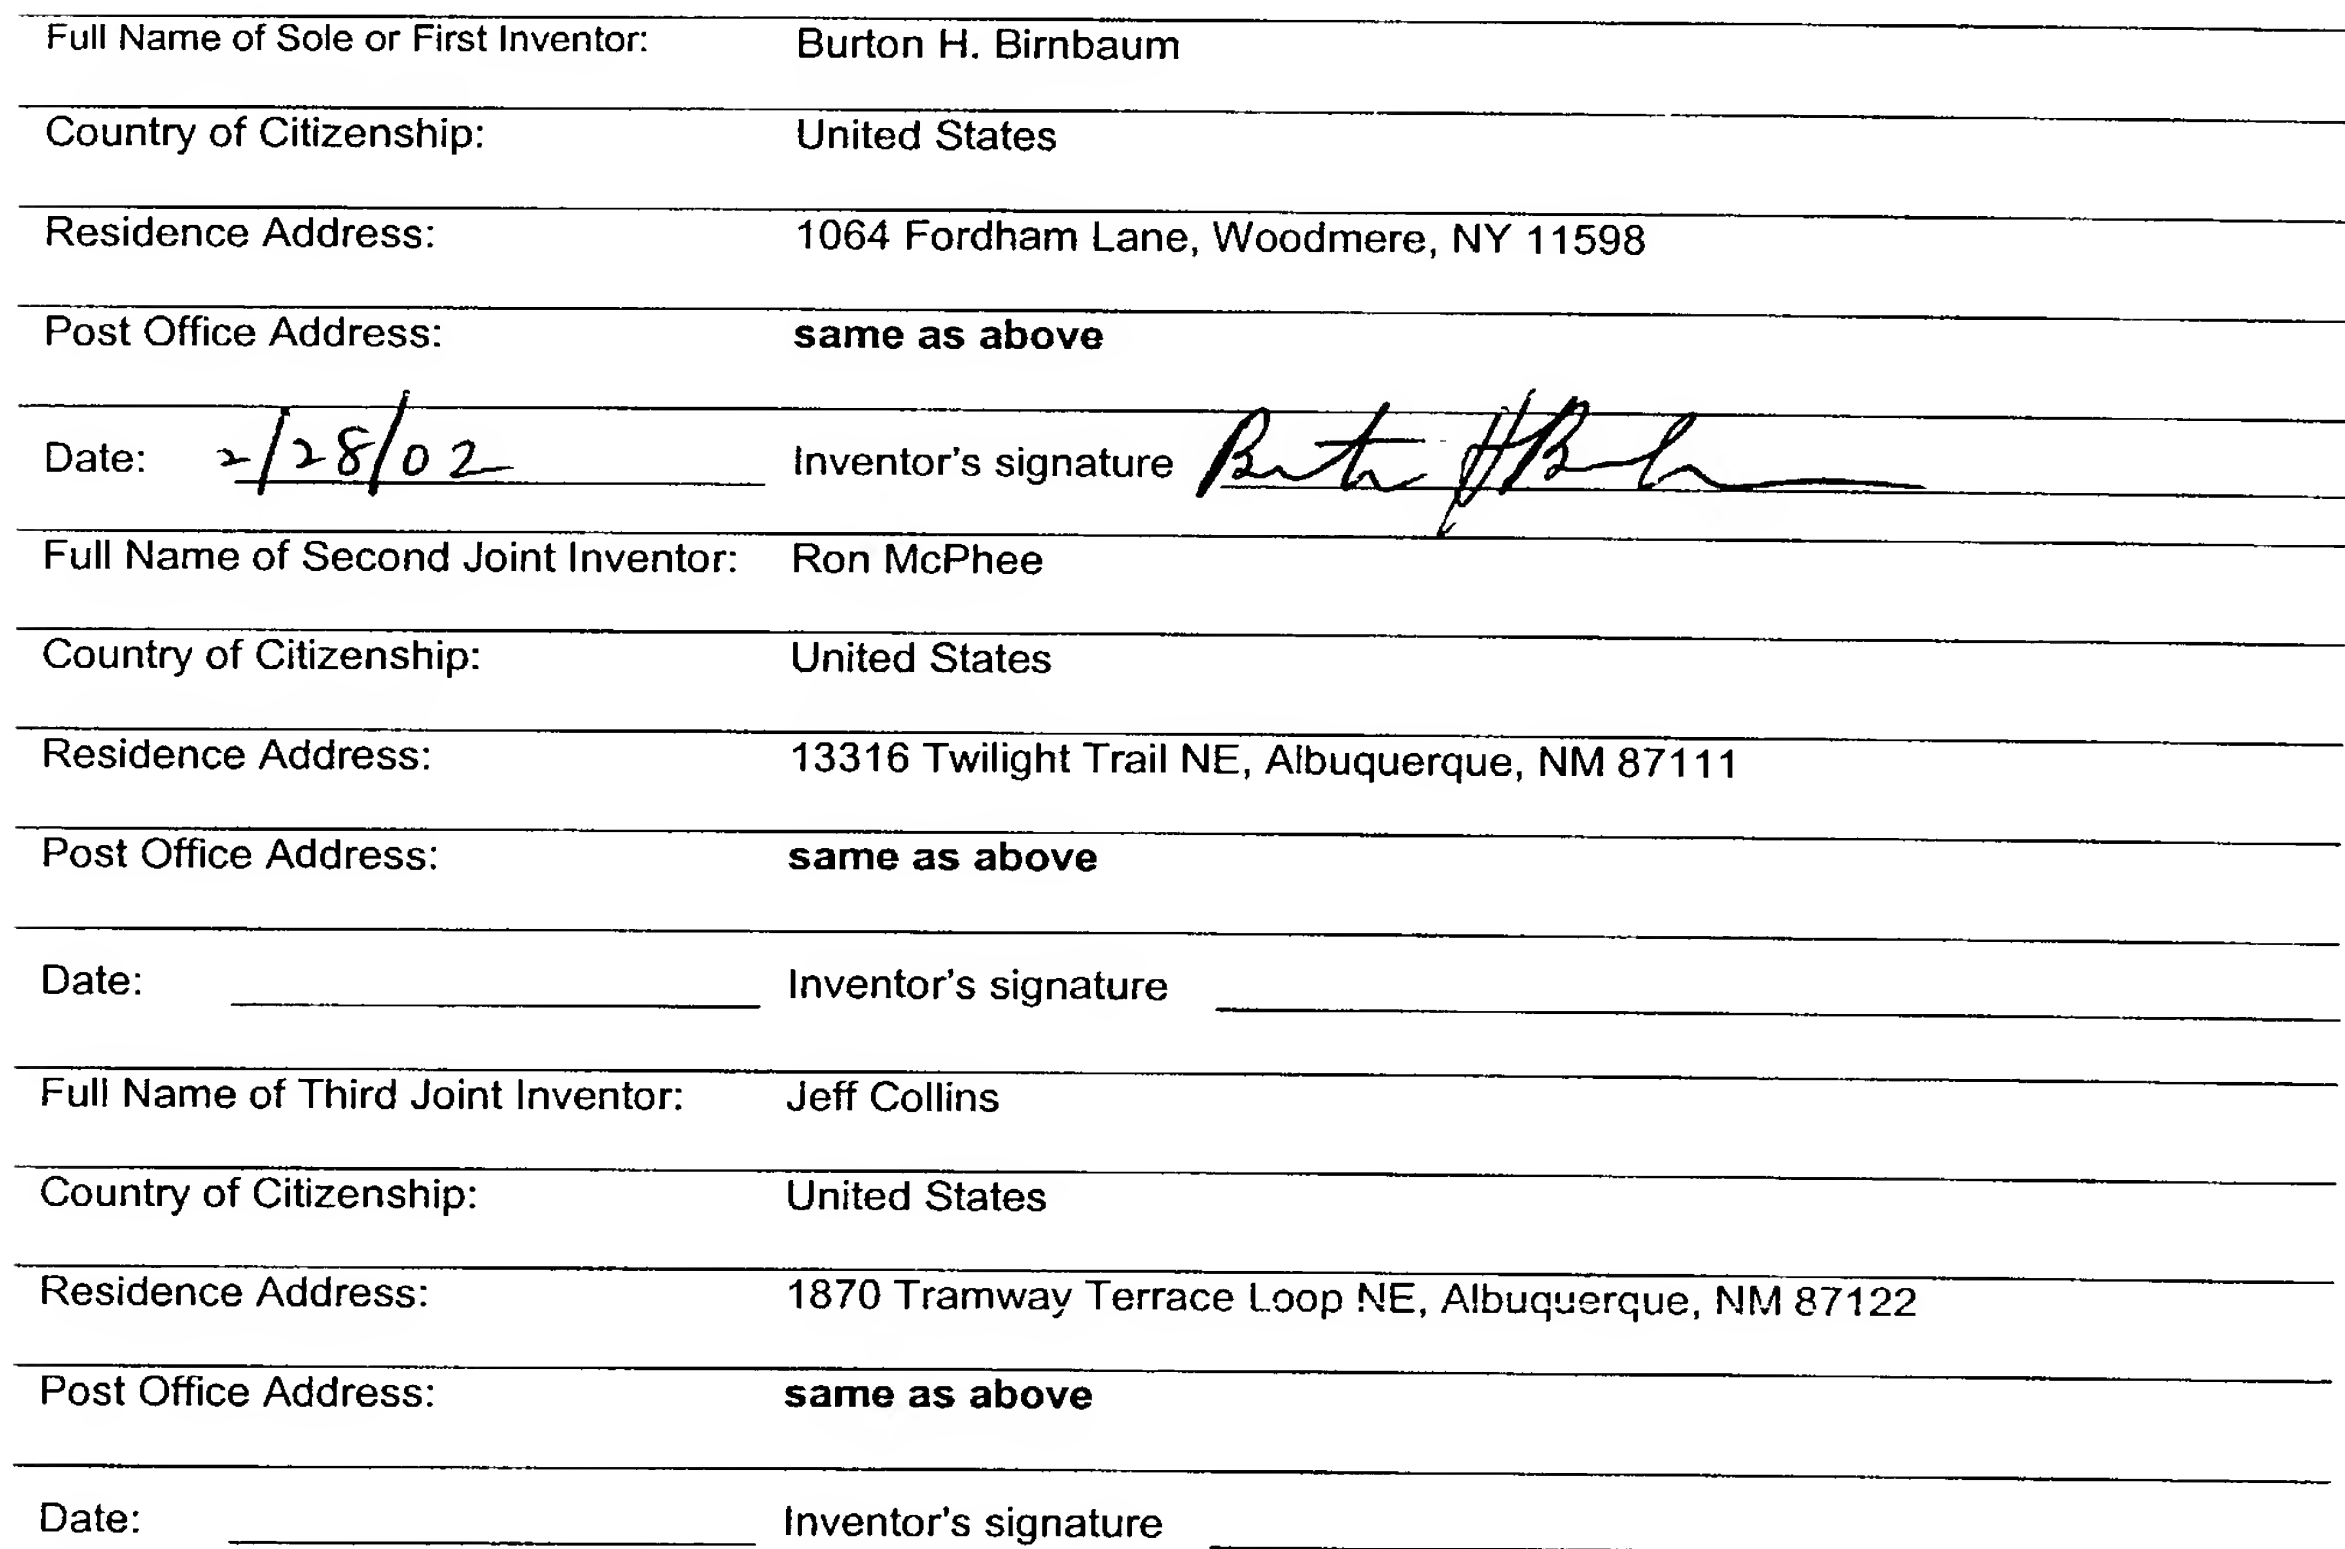 Full Name of Sole or First Inventor: Burton H. Birnbaum
Country of Citizenship: United States
Residence Address: 1064 Fordham Lane, Woodmere, NY 11598
Post Office Address: same as above
Date: 2/28/02 Inventor's signature Burton H Birnbaum
Full Name of Second Joint Inventor: Ron McPhee
Country of Citizenship: United States
Residence Address: 13316 Twilight Trail NE, Albuquerque, NM 87111
Post Office Address: same as above
Date: Inventor's signature
Full Name of Third Joint Inventor: Jeff Collins
Country of Citizenship: United States
Residence Address: 1870 Tramway Terrace Loop NE, Albuquerque, NM 87122
Post Office Address: same as above
Date: Inventor's signature